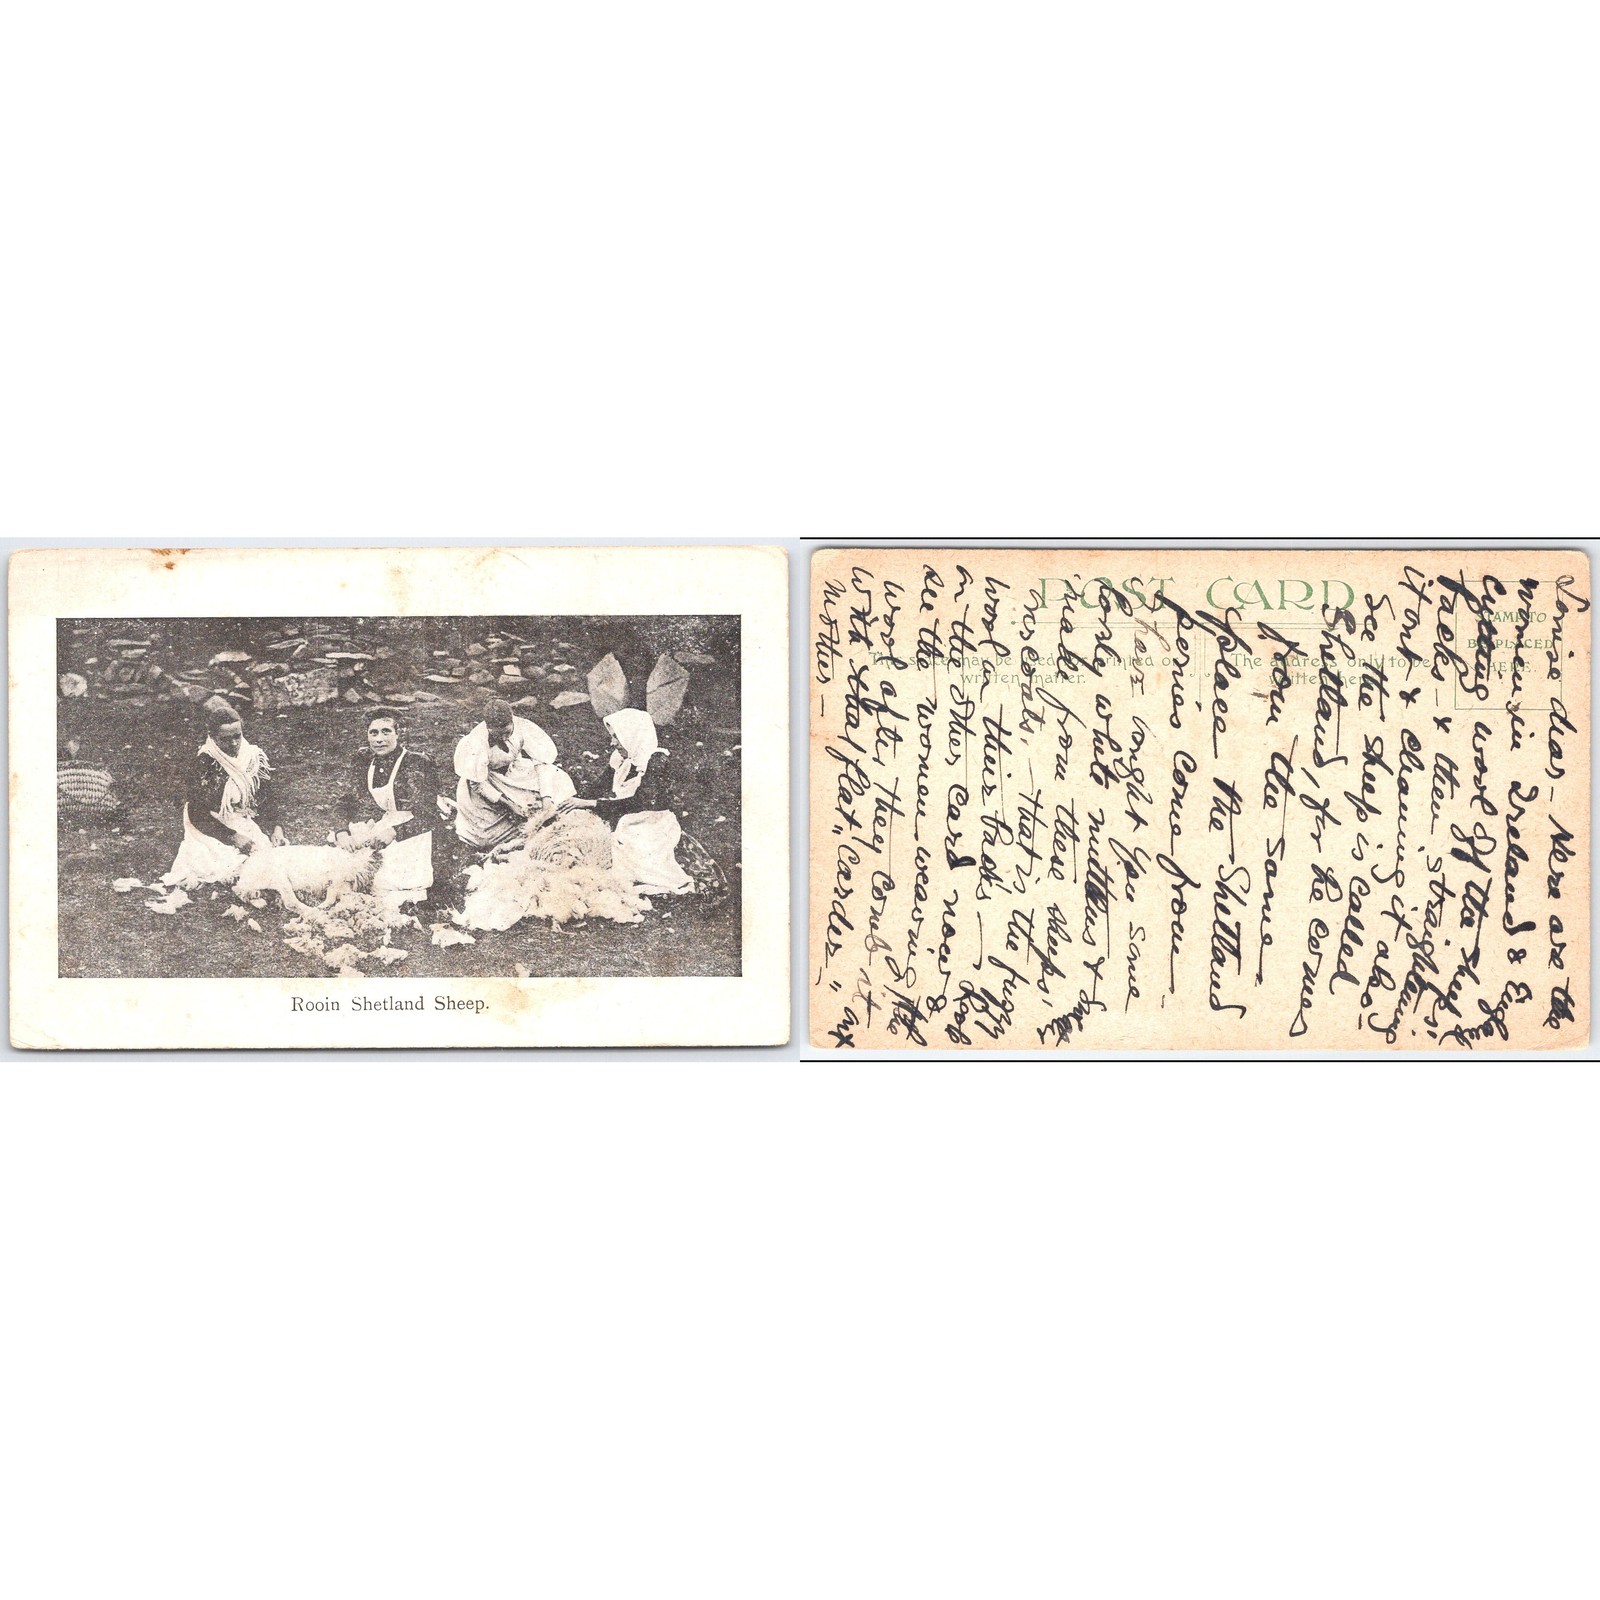 Rooin Shetland Sheep.
POST CARD
STAMP TO
BE PLACED
HERE.
This space may be used for printed or
written matter.
The address only to be
written here.
Louise dear - Here are the
women in Ireland &
cutting wool off the sheep's
backs - & then straightening
it out & cleaning it also -
See the sheep is called
Shetland, for he comes
from the same
place the Shetland
ponies come from -
I have bought you some
lovely white mittens &
made from these sheeps'
overcoats, - that is the fuzzy
wool on their backs - Look
on the other card now &
see the women weaving the
wool after they comb it
with that flat "Carder" -
Mother -